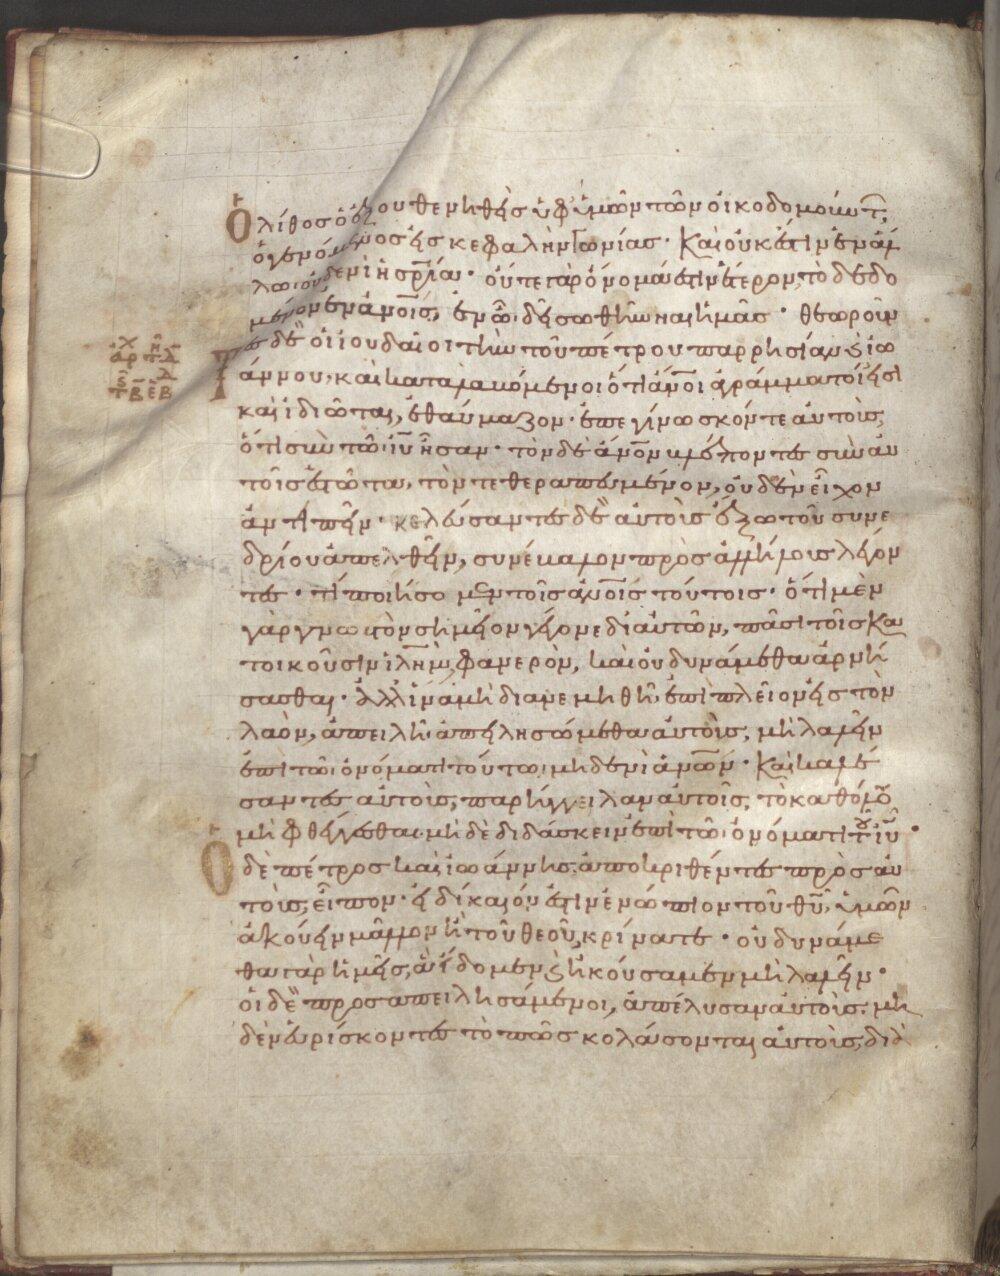 Ὁ λίθος ὁ ἐξουθενηθεὶς ὑφ' ὑμῶν τῶν οἰκοδομούντ,
ὁ γενόμενος εἰς κεφαλὴν γωνίας· Καὶ οὐκ ἔστιν ἐν ἄλ
λω οὐδενὶ ἡ σρία· οὔτε γὰρ ὄνομά ἐστιν ἕτερον, τὸ δεδο
μένον ἐν ἀνοις, ἐν ᾧ δεῖ σωθῆναι ἡμᾶς· θεωροῦν
τες δὲ οἱ ἰουδαῖοι τὴν τοῦ πέτρου παρρησίαν καὶ ἰω
άννου, καὶ καταλαμόμενοι ὅτι ἄνοι ἀγράμματοί εἰσι
καὶ ἰδιῶται, ἐθαύμαζον· ἐπεγίνωσκόν τε αὐτοὺς,
ὅτι σὺν τῶ ιυ ἦσαν· τὸν δὲ ἄνον βλέποντες σὺν αὐ
τοῖς ἑστῶτα, τὸν τεθεραπευμένον, οὐδὲν εἶχον
ἀντιπεῖν· κελεύσαντες δὲ αὐτοὺς ἔξω τοῦ συνε
δρίου ἀπελθεῖν, συνέβαλον πρὸς ἀλλήλους λέγον
τες· τί ποιήσομεν τοῖς ἀνοις τούτοις· ὅτι μὲν
γὰρ γνωστὸν σημεῖον γέγονε δι αὐτῶν, πᾶσι τοῖς κα
τοικοῦσιν ιλημ φανερὸν, καὶ οὐ δυνάμεθα ἀρνή
σασθαι· ἀλλ ἵνα μὴ διανεμηθῆ ἐπὶ πλεῖον εἰς τὸν
λαὸν, ἀπειλῆ ἀπειλησώμεθα αὐτοῖς, μὴ λαλεῖν
ἐπὶ τῶ ὀνόματι τούτω μηδενὶ ἀνων· Καὶ καλέ
σαντες αὐτοὺς, παρήγγειλαν αὐτοῖς, τὸ καθόλου
μὴ φθέγγεσθαι μὴ δὲ διδάσκειν ἐπὶ τῶ ὀνόματι τοῦ ιυ·
Ὁ δὲ πέτρος καὶ ἰωάννης ἀποκριθέντες πρὸς αὐ
τοὺς, εἶπον· εἰ δίκαιόν ἐστιν ἐνώπιον τοῦ θυ, ὑμῶν
ἀκούειν μᾶλλον ἢ τοῦ θεοῦ, κρίνατε· οὐ δυνάμε
θα γὰρ ἡμεῖς, ἃ εἴδομεν καὶ ἠκούσαμεν μὴ λαλεῖν·
οἱ δὲ προσαπειλησάμενοι, ἀπέλυσαν αὐτοὺς· μη
δὲν εὑρίσκοντες τὸ πῶς κολάσονται αὐτοὺς, διὰ